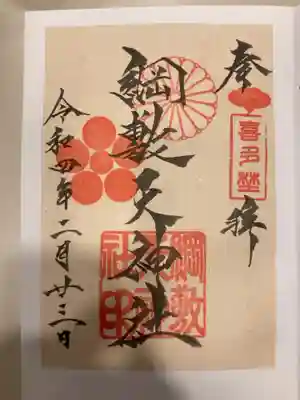 奉拝
喜多埜
綱敷天神社
綱敷天神社印
令和四年二月廿三日